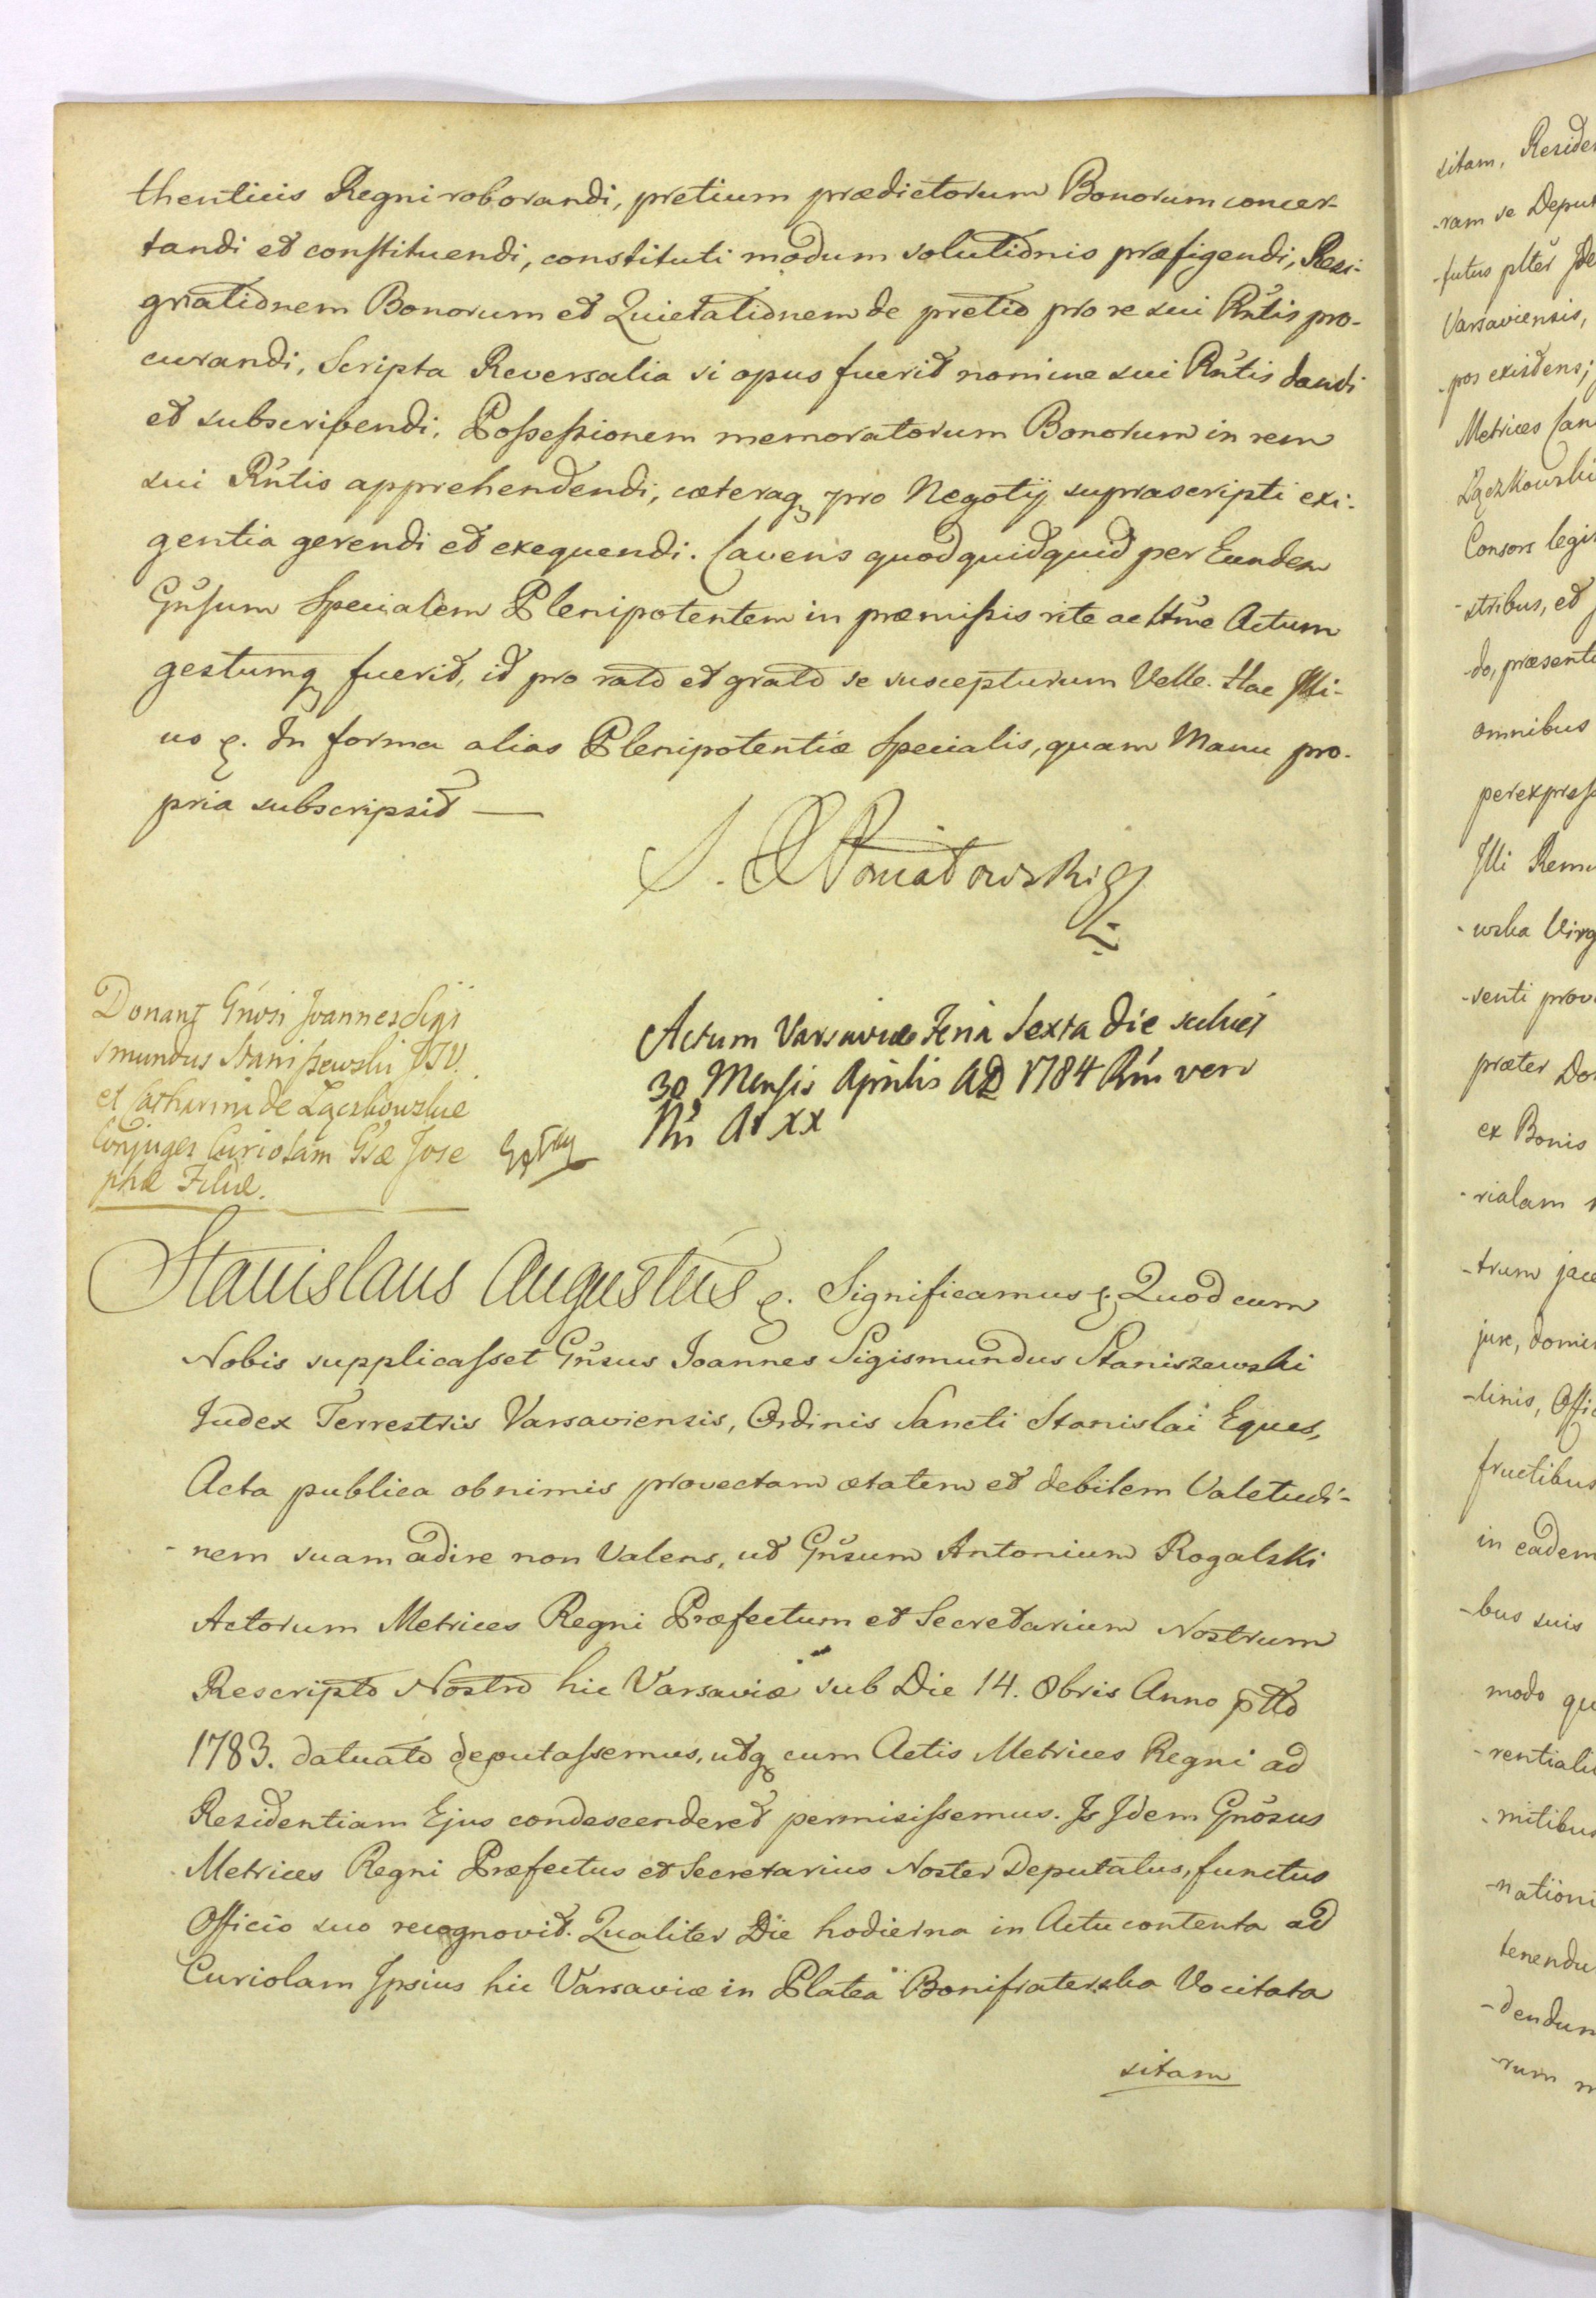 thenticis Regni roborandi, pretium prædictorum Bonorum concer-
tandi et constituendi, constituti modum solutionis præfigendi, Resi-
gnationem Bonorum et Quietationem de pretio pro re sui Rńtis pro-
curandi, Scripta Reversalia si opus fuerit nomine sui Rńtis dandi
et subscribendi. Possessionem memoratorum Bonorum in rem
sui Rńtis apprehendendi, cæteraq pro Negotij suprascripti exi-
gentia gerendi et exequendi. Cavens quod quidquid per Eundem
Gńsum Specialem Plenipotentem in præmissis rite ac ltme Actum
gestumq fuerit, id pro rato et grato se suscepturum Velle. Hac Mi-
uo ę. In forma alias Plenipotentiæ Specialis, quam Manu pro-
pria subscripsit —
S. Poniatowski
Donant Gńosi Joannes Sigi
smundus Staniszewski JTV.
et Catharina de Łączkowskie
Conjuges Curiolam Gsæ Jose
phæ Filiæ.
Actum Varsaviæ Feria Sexta die scilicet
30 Mensis Aprilis AD 1784 Rńi vero
Nri A° XX
Stanislaus Augustus ę. Significamus ę. Quod cum
Nobis supplicasset Gńsus Joannes Sigismundus Staniszewski
Judex Terrestris Varsaviensis, Ordinis Sancti Stanislai Eques,
Acta publica ob nimis provectam ætatem et debilem Valetudi-
-nem suam adire non Valens, ut Gńsum Antonium Rogalski
Actorum Metrices Regni Præfectum et Secretarium Nostrum
Rescripto Nostro hic Varsaviæ sub Die 14. 8bris Anno ptto
1783. datuato deputassemus, utq cum Actis Metrices Regni ad
Residentiam Ejus condescenderet permisissemus. Is Idem Gnosus
Metrices Regni Præfectus et Secretarius Noster Deputatus, functus
Officio suo recognovit. Qualiter Die hodierna in Actu contenta ad
Curiolam Ipsius hic Varsaviæ in Platea Bonifraterska Vocitata
sitam
sitam,
-ram se
-futus plter
Varsaviensis,
-pos existens;
Metrices
Łączkowski
Consors
-stribus, et
-do,
omnibus
Illi
-wska
-senti
præter
ex Bonis
-rialam
-trum
jure,
-linis,
fructibus
in eadem
-bus suis
modo
-mitibus
-rum